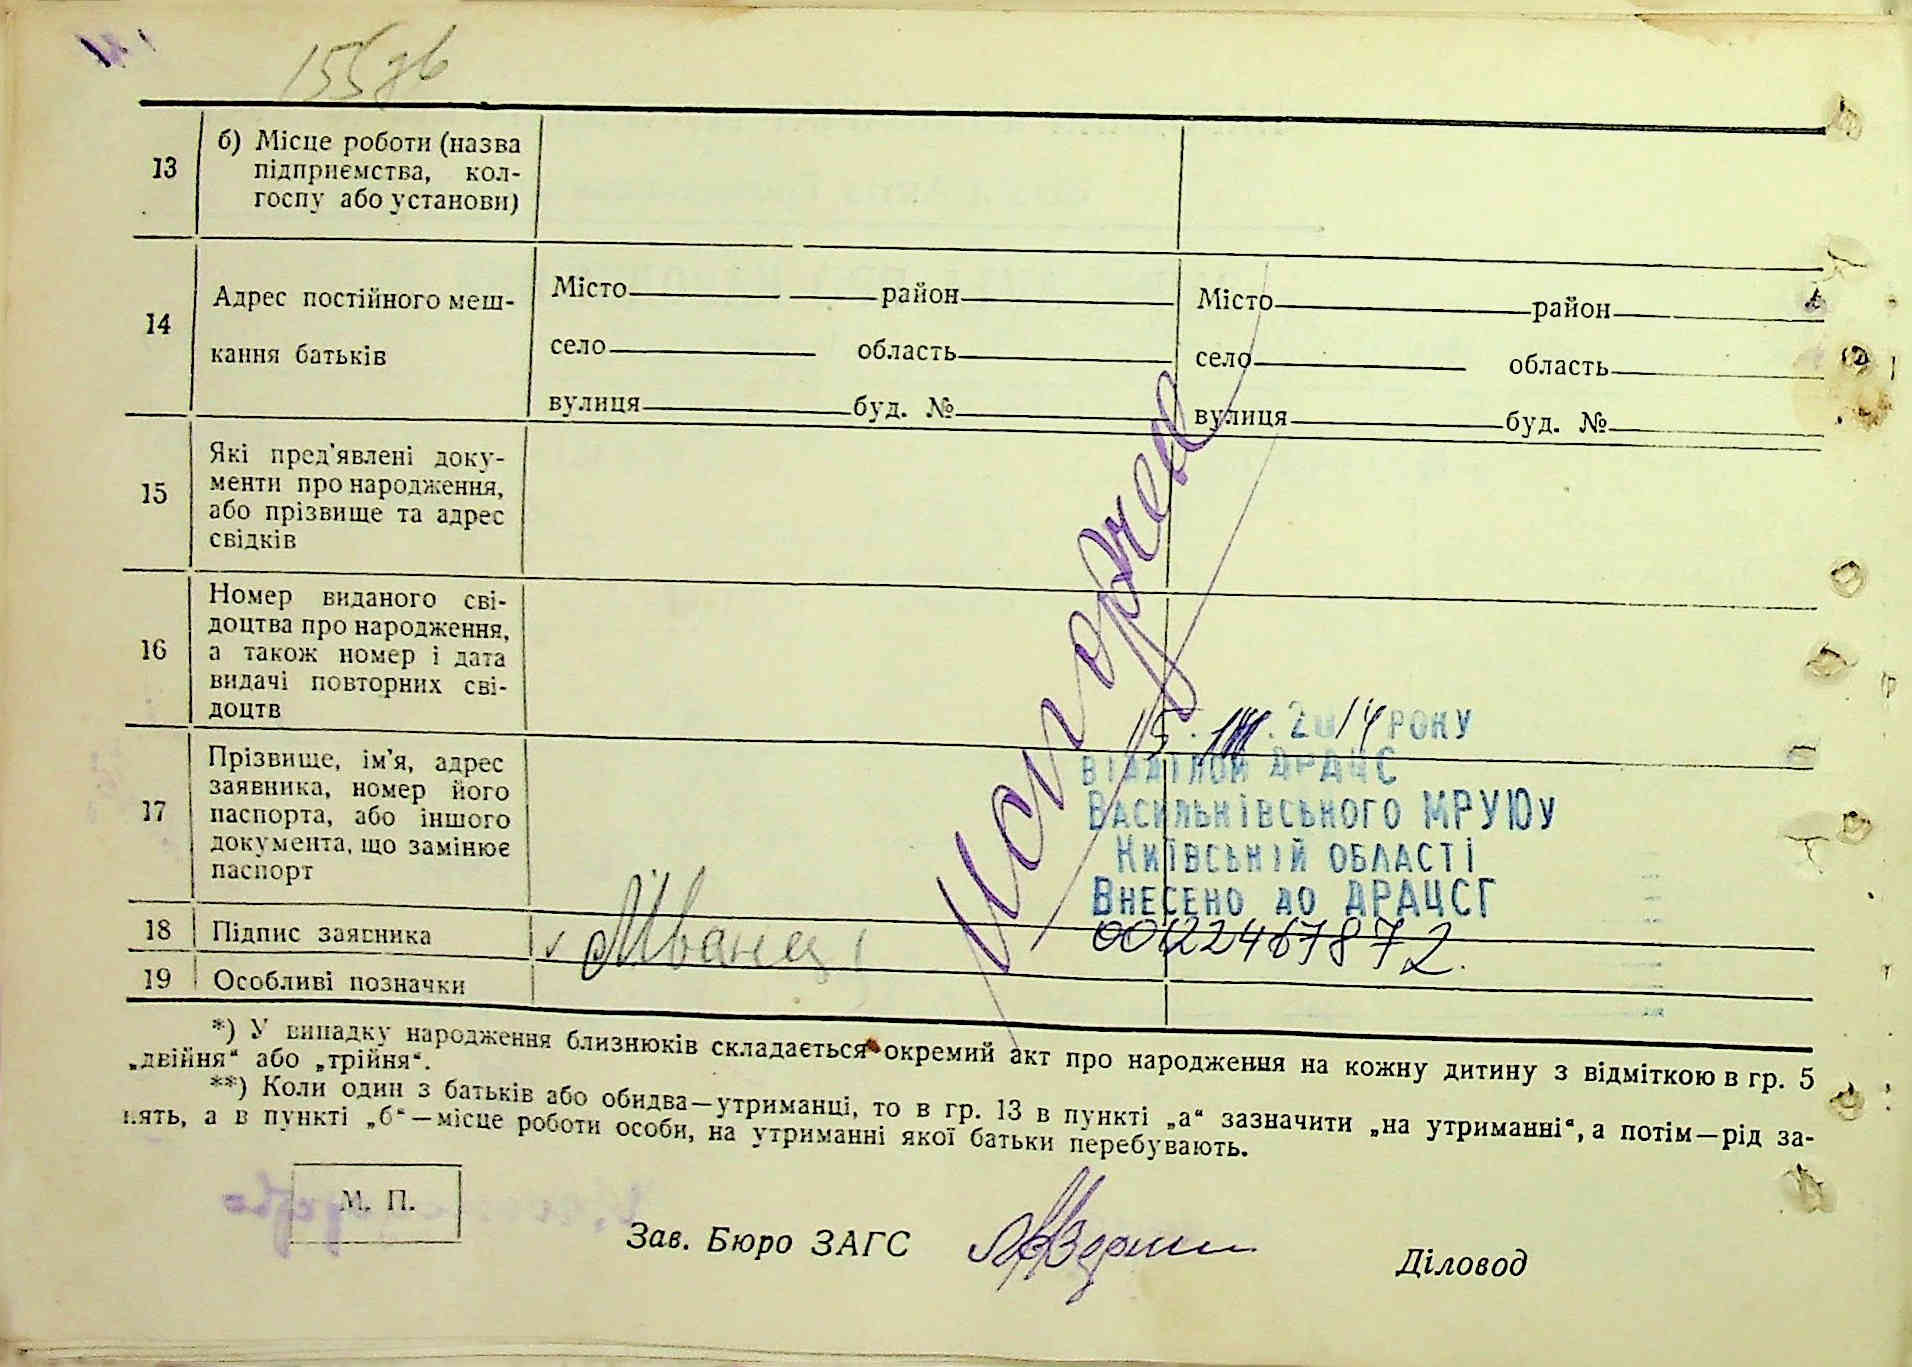 155 зв
13
б) Місце роботи (назва
підприємства, кол-
госпу або установи)
14
Адрес постійного меш-
кання батьків
Місто район
село область
вулиця буд. №
Місто район
село область
вулиця буд. №
15
Які пред'явлені доку-
менти про народження,
або прізвище та адрес
свідків
16
Номер виданого сві-
доцтва про народження,
а також номер і дата
видачі повторних сві-
доцтв
17
Прізвище, ім'я, адрес
заявника, номер його
паспорта, або іншого
документа, що замінює
паспорт
15. 2014 РОКУ
ВІДДІЛОМ ДРАЦС
ВАСИЛЬКІВСЬКОГО МРУЮУ
КИЇВСЬКІЙ ОБЛАСТІ
ВНЕСЕНО ДО ДРАЦСГ
00122467872.
18
Підпис заявника
19
Особливі позначки
*) У випадку народження близнюків складається окремий акт про народження на кожну дитину з відміткою в гр. 5
„двійня“ або „трійня“.
**) Коли один з батьків або обидва—утриманці, то в гр. 13 в пункті „а“ зазначити „на утриманні“, а потім—рід за-
нять, а в пункті „б“—місце роботи особи, на утриманні якої батьки перебувають.
М. П.
Зав. Бюро ЗАГС
Діловод